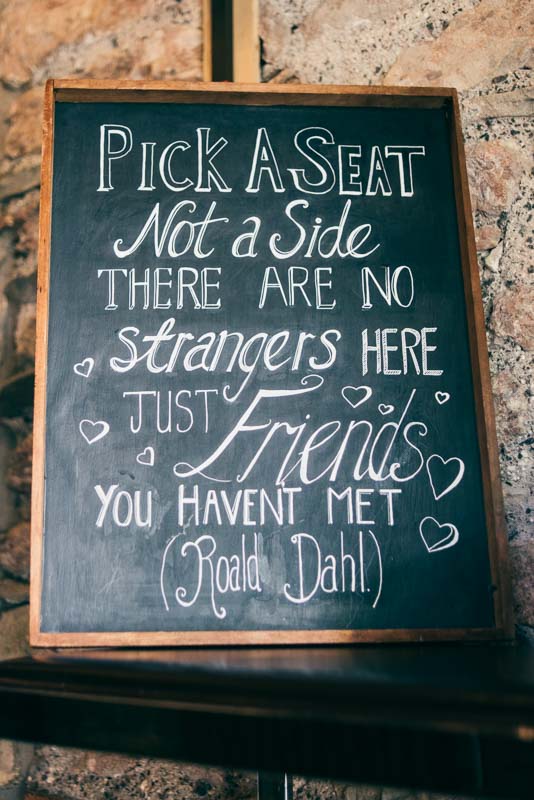 PICK A SEAT
Not a Side
THERE ARE NO
strangers HERE
JUST Friends
YOU HAVENT MET
(Roald Dahl.)